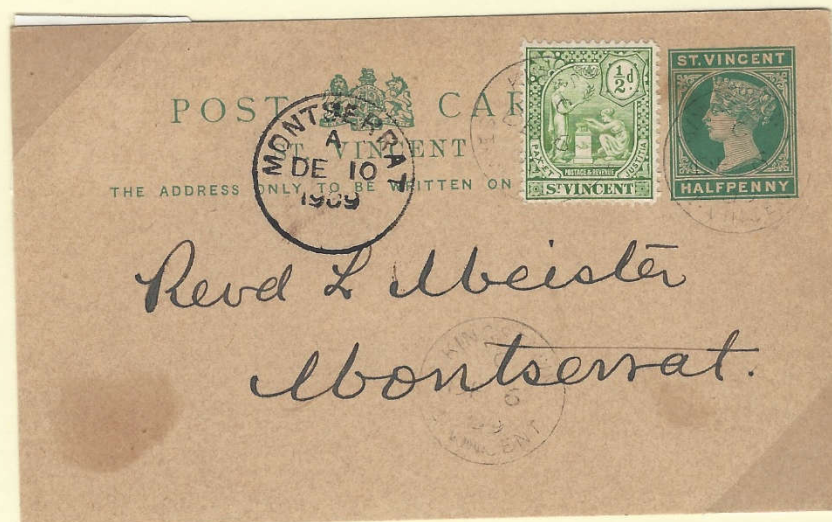 POST CAR
ST. VINCENT
THE ADDRESS ONLY TO BE WRITTEN ON
MONTSERRAT
A
DE 10
1909
½d
PAX ET JUSTITIA
POSTAGE & REVENUE
ST VINCENT
ST. VINCENT
HALFPENNY
Revd L Meister
Montserrat.
KINGS
C
VINCENT